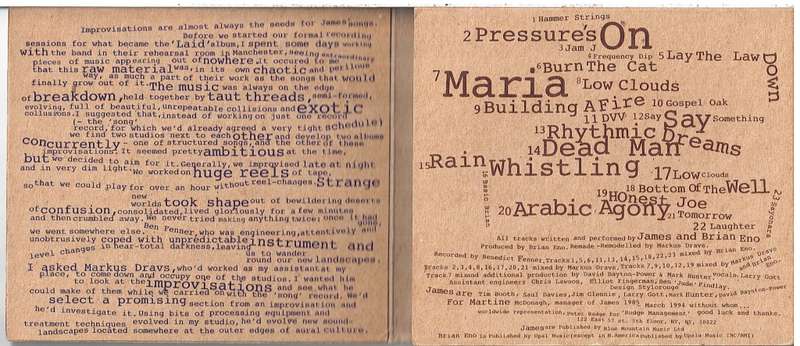 Improvisations are almost always the seeds for James songs.
Before we started our formal recording
sessions for what became the 'Laid' album, I spent some days working
with the band in their rehearsal room in Manchester, seeing extraordinary
pieces of music appearing out of nowhere. It occured to me
that this raw material was, in its own chaotic and perilous
way, as much a part of their work as the songs that would
finally grow out of it. The music was always on the edge
of breakdown, held together by taut threads, semi-formed,
evolving, full of beautiful, unrepeatable collisions and exotic
collusions. I suggested that, instead of working on just one record
(- the 'song'
record, for which we'd already agreed a very tight schedule)
we find two studios next to each other and develop two albums
concurrently - one of structured songs, and the other of these
improvisations. It seemed pretty ambitious at the time,
but we decided to aim for it. Generally, we improvised late at night
and in very dim light. We worked on huge reels of tape,
so that we could play for over an hour without reel-changes. Strange
new
worlds took shape out of bewildering deserts
of confusion, consolidated, lived gloriously for a few minutes
and then crumbled away. We never tried making anything twice: once it had gone,
we went somewhere else. Ben Fenner, who was engineering, attentively and
unobtrusively coped with unpredictable instrument and
level changes in near-total darkness, leaving
us to wander
round our new landscapes.
I asked Markus Dravs, who'd worked as my assistant at my
place, to come down and occupy one of the studios. I wanted him
to look at the improvisations and see what he
could make of them while we carried on with the 'song' record. He'd
select a promising section from an improvisation and
he'd investigate it. Using bits of processing equipment and
treatment techniques evolved in my studio, he'd evolve new sound-
landscapes located somewhere at the outer edges of aural culture.
1 Hammer Strings
2 Pressure's On
3 Jam J
4 Frequency Dip 5 Lay The Law Down
6 Burn The Cat
7 Maria 8 Low Clouds
9 Building A Fire 10 Gospel Oak
11 DVV 12 Say Say Something
13 Rhythmic Dreams
14 Dead Man
15 Rain Whistling
16 Basic Brian
17 Low Clouds
18 Bottom Of The Well
19 HOnest Joe
20 Arabic Agony
21 Tomorrow
22 Laughter
23 Sayonara
All tracks written and performed by James and Brian Eno
Produced by Brian Eno. Remade-Remodelled by Markus Dravs.
Recorded by Benedict Fenner, Tracks 1,5,6,11,13,14,15,18,22,23 mixed by Brian Eno.
Tracks 2,3,4,8,16,17,20,21 mixed by Markus Dravs, Tracks 7,9,10,12,19 mixed by Markus Dravs and Brian Eno.
Track 7 mixed additional production by David Baynton-Power & Mark Hunter, vocals. Larry Gott
Assistant engineers Chris Lawson, Elliot Fingerman, Ben 'Jude' Findlay.
Design Stylorouge
James are Tim Booth, Saul Davies, Jim Glennie, Larry Gott, Mark Hunter, David Baynton-Power
For Martine McDonagh, manager of James 1985 March 1994 without whom.
worldwide representation, Peter Rudge for 'Rudge Management.' good luck and thanks.
122 East 57 St. 5th Floor, NY, NY, 10022
James are Published by Blue Mountain Music Ltd
Brian Eno is Published by Opal Music (except in N.America Published by Upala Music INC/BMI)